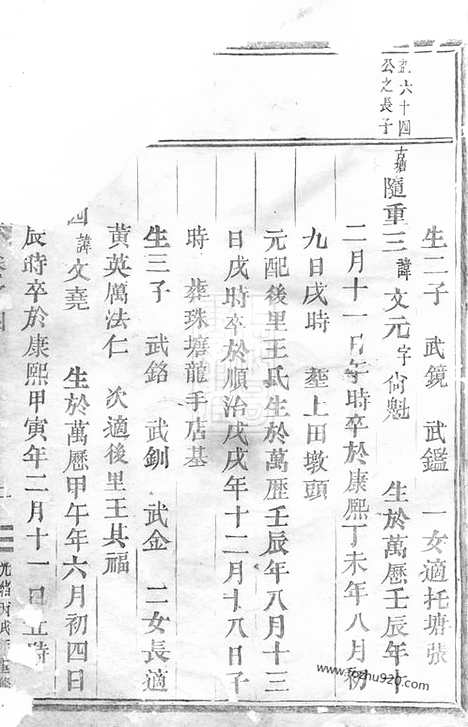 六十四
公之長子
生二子　武鏡　武鑑　一女適托塘張
隨重三諱文元字尙魁　生於萬曆壬辰年十
二月十一日午時卒於康熙丁未年八月初
九日戌時　塟上田墩頭
元配後里王氏生於萬歷壬辰年八月十三
日戌時卒於順治戊戌年十二月十八日子
時　葬珠塘龍手店基
生三子　武鉻　武釧　武金　二女長適
黃英厲法仁　次適後里王其福
四諱文堯　生於萬歷甲午年六月初四日
辰時卒於康熙甲寅年二月十一日丑時
www.fozhu920.com